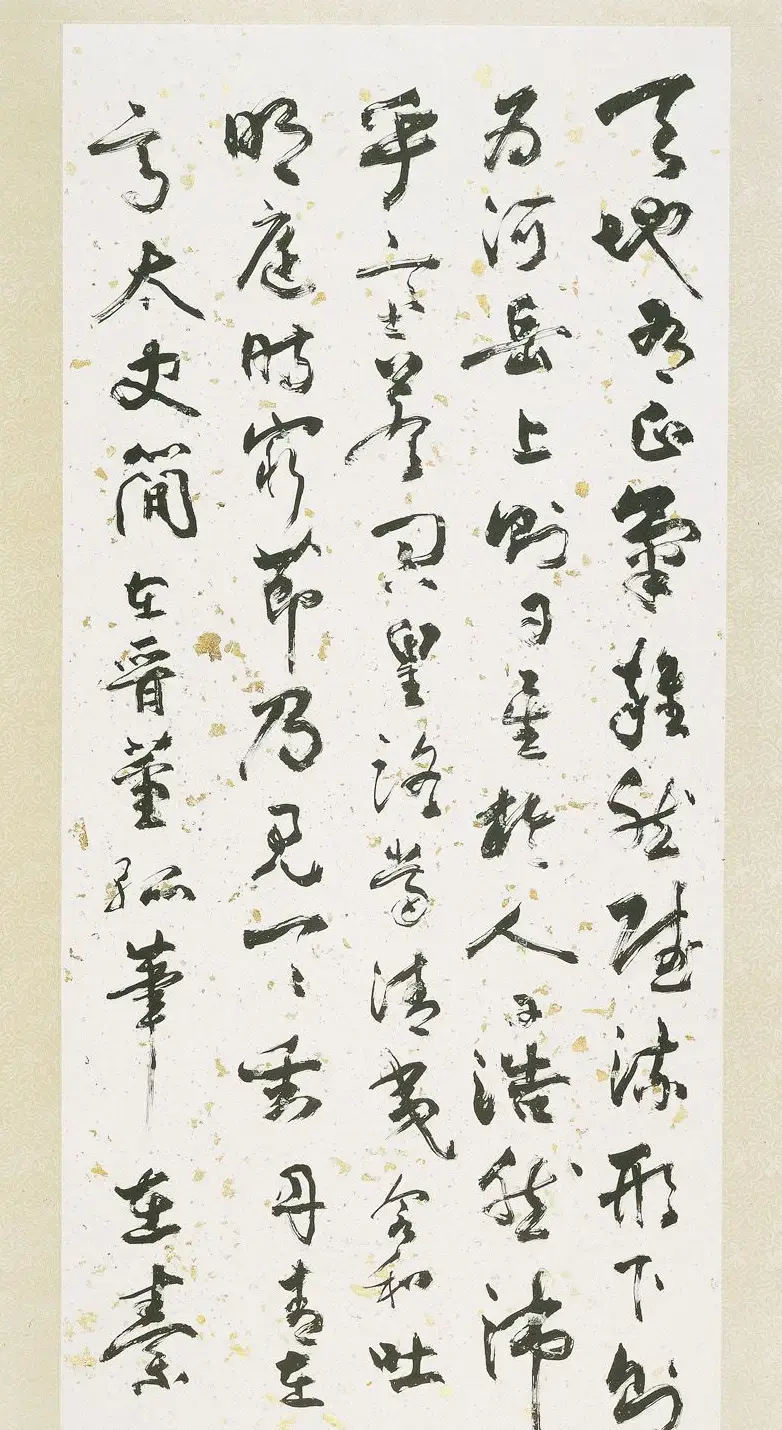 天地有正氣雜然賦流形下則
為河岳上則日星於人曰浩然沛
乎塞蒼冥皇路當清夷含和吐
明庭時窮節乃見一一垂丹青在
齊太史簡在晉董狐筆在秦